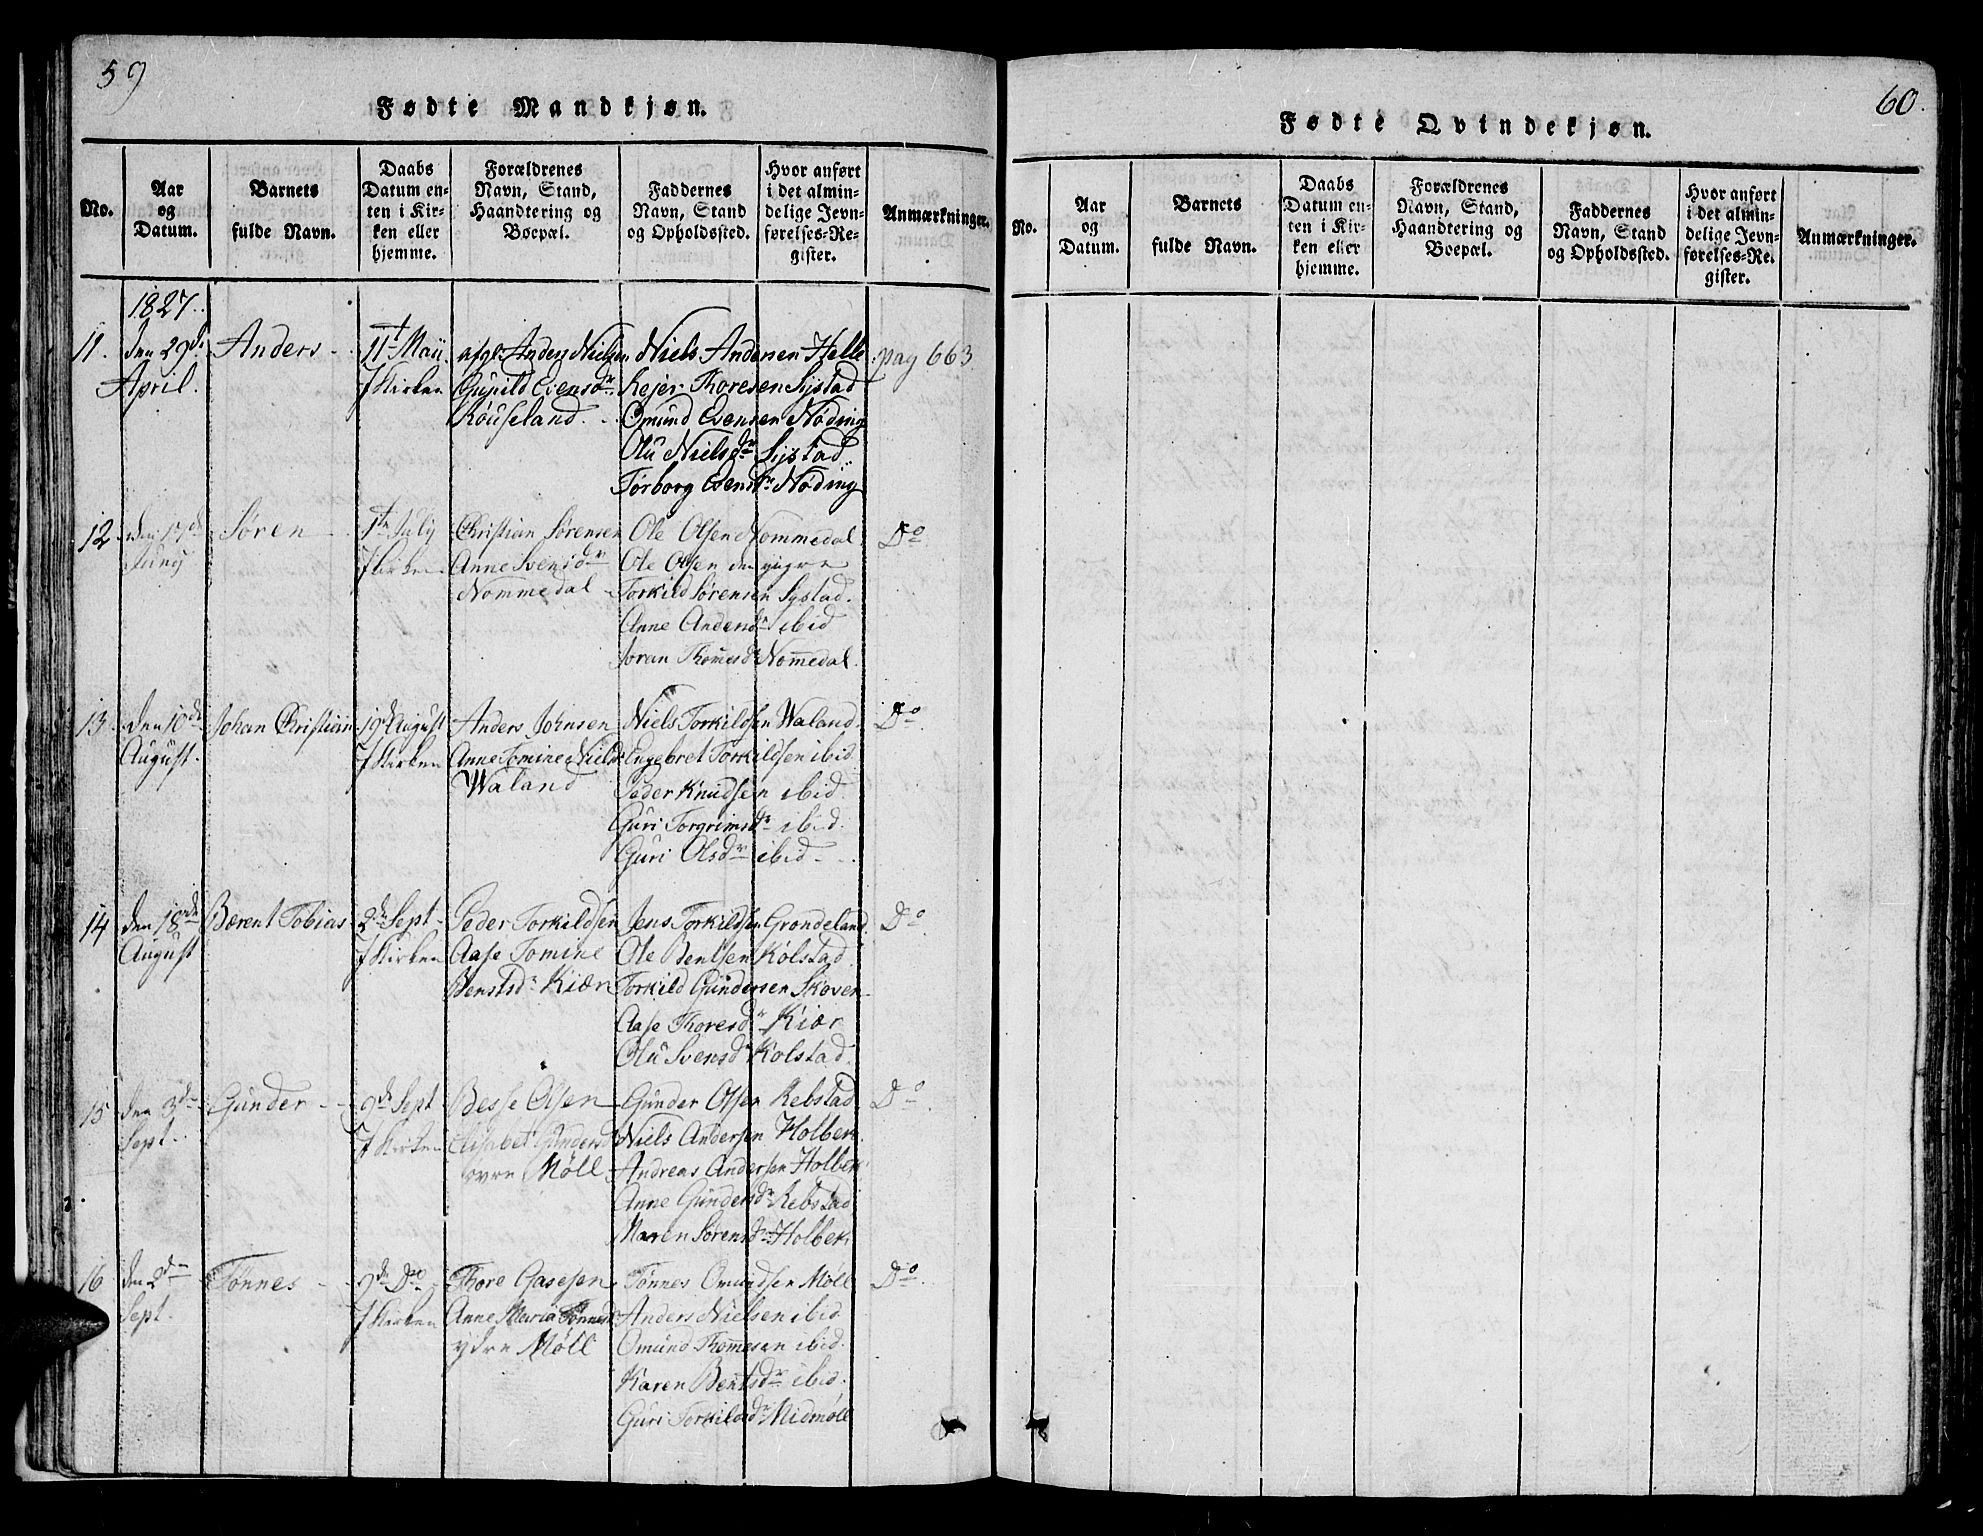 59
Fødte Mandkjøn.
No.
Aar
og
Datum.
Barnets
fulde Navn.
Daabs
Datum en-
ten i Kir-
ken eller
hjemme.
Forældrenes
Navn, Stand,
Haandtering og
Boepæl.
Faddernes
Navn, Stand
og Opholdssted.
Hvor anført
i det almin-
delige Jevn-
førelses-Re-
gister.
Anmærkninger.
1827.
11. den 29de
April.
Anders
11te Maij
J Kirken
afgl. Anders Nielsen
Evensdr.
Røuseland.
Niels Andersen Helle
Rejer Thoresen Systad
Omund Evensen Nøding
Olu Nielsdr Systad
Torborg Evensdr Nøding
pag 663
12. den 17de
Juny
Søren
1te July
J Kirken
Christian Sørensen
Anne Svensdr
Nommedal
Ole Olsen Nommedal
Ole Olsen den yngre
Torkild Sørensen Systad.
Anne Andersdr ibid
Joran Thomesdr Nommedal.
Do
13. den 10de
August.
Johan Christian
19de August
J Kirken
Anders Johnsen
Anne Tomine Nielsdr
Waland
Niels Torkildsen Waland.
Engebret Torkildsen ibid.
Peder Knudsen ibid.
Guri Torgrimsdr ibid.
Guri Olsdr ibid
Do
14 den 18de
August
Bærent Tobias
2den Sept
J Kirken
Peder Torkildsen
Aase Tomine
Bentsdr Kiær
Jens Torkildsen Grondeland.
Ole Bentsen Kolstad
Torkild Gundersen Skoven
Aase Thoresdr Kiær
Olu Svensdr Kolstad.
Do
15 den 3die
Sept.
Gunder
9de Sept
J Kirken
Besse Olsen
Elisabet Gundersdr
øvre Møll
Gunder Olsen Rebstad
Niels Andersen Holbek.
Andreas Andersen Holbek
Anne Gundersdr Rebstad
Maren Sørensdr Holbek
Do
16 den 2den
Sept.
Tønnes
9de Do
J Kirken
Thore Gasesen
Anne Maria Tønnesdr
ydre Møll
Tønnes Omundsen Møll
Anders Nielsen ibid
Omund Thomesen ibid.
Karen Bentsdr ibid.
Guri Torkildsdr Midmøll
Do
60.
Fødte Qvindekjøn.
No.
Aar
og
Datum.
Barnets
fulde Navn.
Daabs
Datum en-
ten i Kir-
ken eller
hjemme.
Forældrenes
Navn, Stand,
Haandtering og
Boepæl.
Faddernes
Navn, Stand
og Opholdssted.
Hvor anført
i det almin-
delige Jevn-
førelses-Re-
gister.
Anmærkninger.